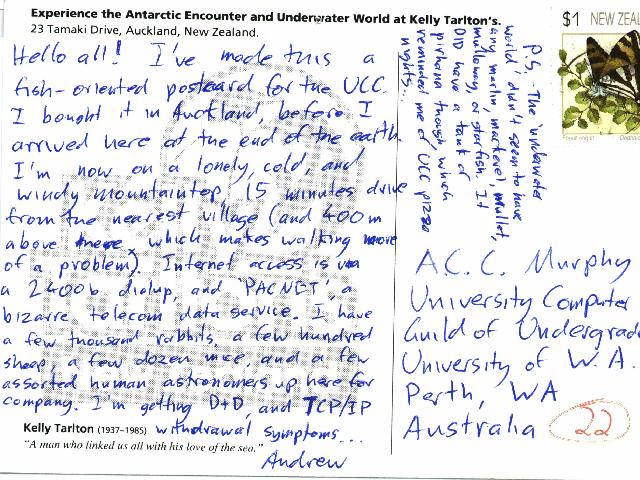 Experience the Antarctic Encounter and Underwater World at Kelly Tarlton's.
23 Tamaki Drive, Auckland, New Zealand.
Hello all! I've made this a
fish-oriented postcard for the UCC.
I bought it in Auckland, before I
arrived here at the end of the earth.
I'm now on a lonely, cold, and
windy mountaintop, 15 minutes drive
from the nearest village (and 400m
above there, which makes walking more
of a problem). Internet access is via
a 2400b dialup, and 'PACNET', a
bizarre telecom data service. I have
a few thousand rabbits, a few hundred
sheep, a few dozen mice, and a few
assorted human astronomers up here for
company. I'm getting D+D, and TCP/IP
withdrawal symptoms...
Andrew
Kelly Tarlton (1937–1985)
"A man who linked us all with his love of the sea."
P.S. - The underwater
world didn't seem to have
any marlin, mackerel, mullet,
mulloway or starfish. It
DID have a tank of
pirhana though which
reminded me of UCC pizza
nights...
$1 NEW ZEAL
Forest ringlet
A.C.C. Murphy
University Computer
Guild of Undergradu
University of W.A.
Perth, WA
Australia
22